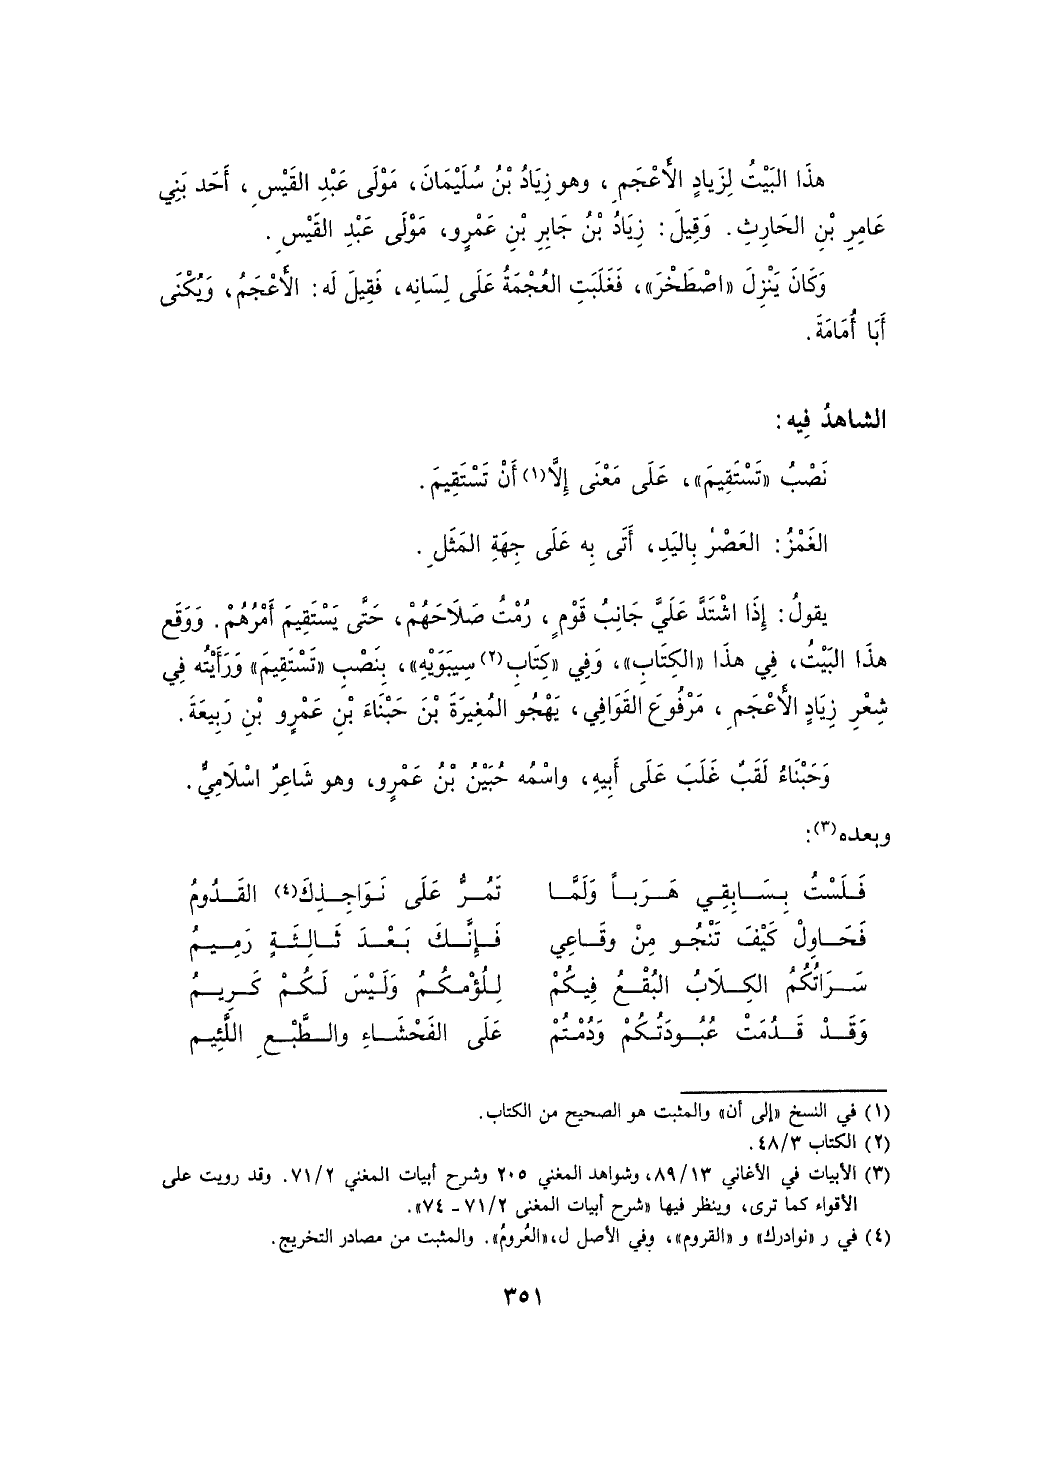 هذَا البَيْتُ لِزَيادٍ الأَعْجَمِ، وهو زِيَادُ بْنُ سُلَيْمَانَ، مَوْلَى عَبْدِ القَيْسِ، أَحَد بَنِي
عَامِرِ بْنِ الحَارِثِ. وَقِيلَ: زِيَادُ بْنُ جَابِرِ بْنِ عَمْرٍو، مَوْلَى عَبْدِ القَيْسِ.
وَكَانَ يَنْزِلَ «اصْطَخْرَ»، فَغَلَبَتِ العُجْمَةُ عَلَى لِسَانِه، فَقِيلَ لَه: الأَعْجَمُ، وَيُكْنَى
أَبَا أُمَامَةَ.
الشاهدُ فِيه:
نَصْبُ «تَسْتَقِيمَ»، عَلَى مَعْنَى إِلَّا(١) أَنْ تَسْتَقِيمَ.
الغَمْزُ: العَصْرُ بِاليَدِ، أَتَى بِه عَلَى جِهَةِ المَثَلِ.
يقولُ: إِذَا اشْتَدَّ عَلَيَّ جَانِبُ قَوْمٍ، رُمْتُ صَلَاحَهُمْ، حَتَّى يَسْتَقِيمَ أَمْرُهُمْ. وَوَقَع
هذَا البَيْتُ، فِي هذَا «الكِتَابِ»، وَفِي «كِتَابِ(٢) سِيبَوَيْهِ»، بِنَصْبِ «تَسْتَقِيمَ» وَرَأَيْتُه فِي
شِعْرِ زِيَادٍ الأَعْجَمِ، مَرْفُوعَ القَوَافِي، يَهْجُو المُغِيرَةَ بْنَ حَبْنَاءَ بْنِ عَمْرٍو بْنِ رَبِيعَةَ.
وَحَبْنَاءُ لَقَبٌ غَلَبَ عَلَى أَبِيهِ، واسْمُه حُبَيْنُ بْنُ عَمْرٍو، وهو شَاعِرٌ اسْلَامِيٌّ.
وبعده(٣):
فَلَسْتُ بِسَابِقِي هَرَباً وَلَمَّا تَمُرُّ عَلَى نَوَاجِذِكَ(٤) القَدُومُ
فَحَاوِلْ كَيْفَ تَنْجُو مِنْ وِقَاعِي فَإِنَّكَ بَعْدَ ثَالِثَةٍ رَمِيمُ
سَرَاتُكُمُ الكِلَابُ البُقْعُ فِيكُمْ لِلُؤْمِكُمُ وَلَيْسَ لَكُمْ كَرِيمُ
وَقَدْ قَدُمَتْ عُبُودَتُكُمْ وَدُمْتُمْ عَلَى الفَحْشَاءِ والطَّبْعِ اللَّئِيمِ
(١) في النسخ «إلى أن» والمثبت هو الصحيح من الكتاب.
(٢) الكتاب ٤٨/٣.
(٣) الأبيات في الأغاني ٨٩/١٣، وشواهد المغني ٢٠٥ وشرح أبيات المغني ٧١/٢. وقد رويت على
الأقواء كما ترى، وينظر فيها «شرح أبيات المغنى ٧١/٢ - ٧٤».
(٤) في ر «نوادرك» و «القروم»، وفي الأصل ل، «العُرومُ». والمثبت من مصادر التخريج.
٣٥١